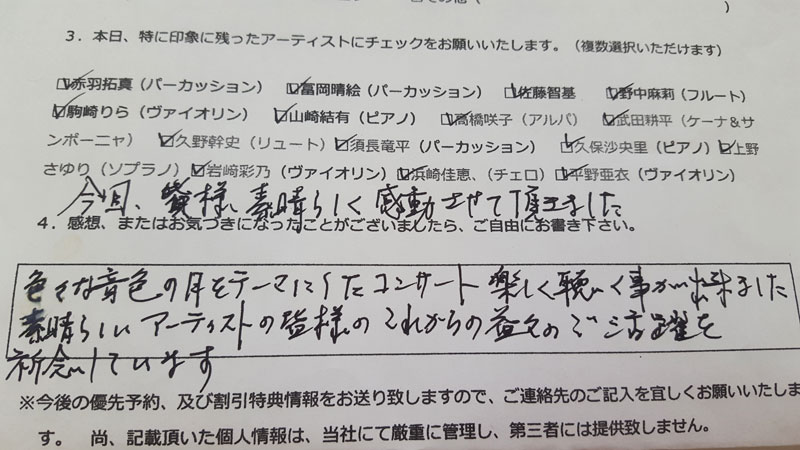 ３．本日、特に印象に残ったアーティストにチェックをお願いいたします。（複数選択いただけます）
赤羽拓真（パーカッション） 冨岡晴絵（パーカッション） 佐藤智基 野中麻莉（フルート）
駒崎りら（ヴァイオリン） 山崎結有（ピアノ） 高橋咲子（アルパ） 武田耕平（ケーナ＆サ
ンポーニャ） 久野幹史（リュート） 須長竜平（パーカッション） 久保沙央里（ピアノ） 上野
さゆり（ソプラノ） 岩﨑彩乃（ヴァイオリン） 浜崎佳恵、（チェロ） 平野亜衣（ヴァイオリン）
今回、皆様、素晴らしく感動させて頂きました
４．感想、またはお気づきになったことがございましたら、ご自由にお書き下さい。
色々な音色の月をテーマにしたコンサート楽しく聴く事が出来ました
素晴らしいアーティストの皆様のこれからの益々のご活躍を
祈念しています
※今後の優先予約、及び割引特典情報をお送り致しますので、ご連絡先のご記入を宜しくお願いいたしま
す。 尚、記載頂いた個人情報は、当社にて厳重に管理し、第三者には提供致しません。